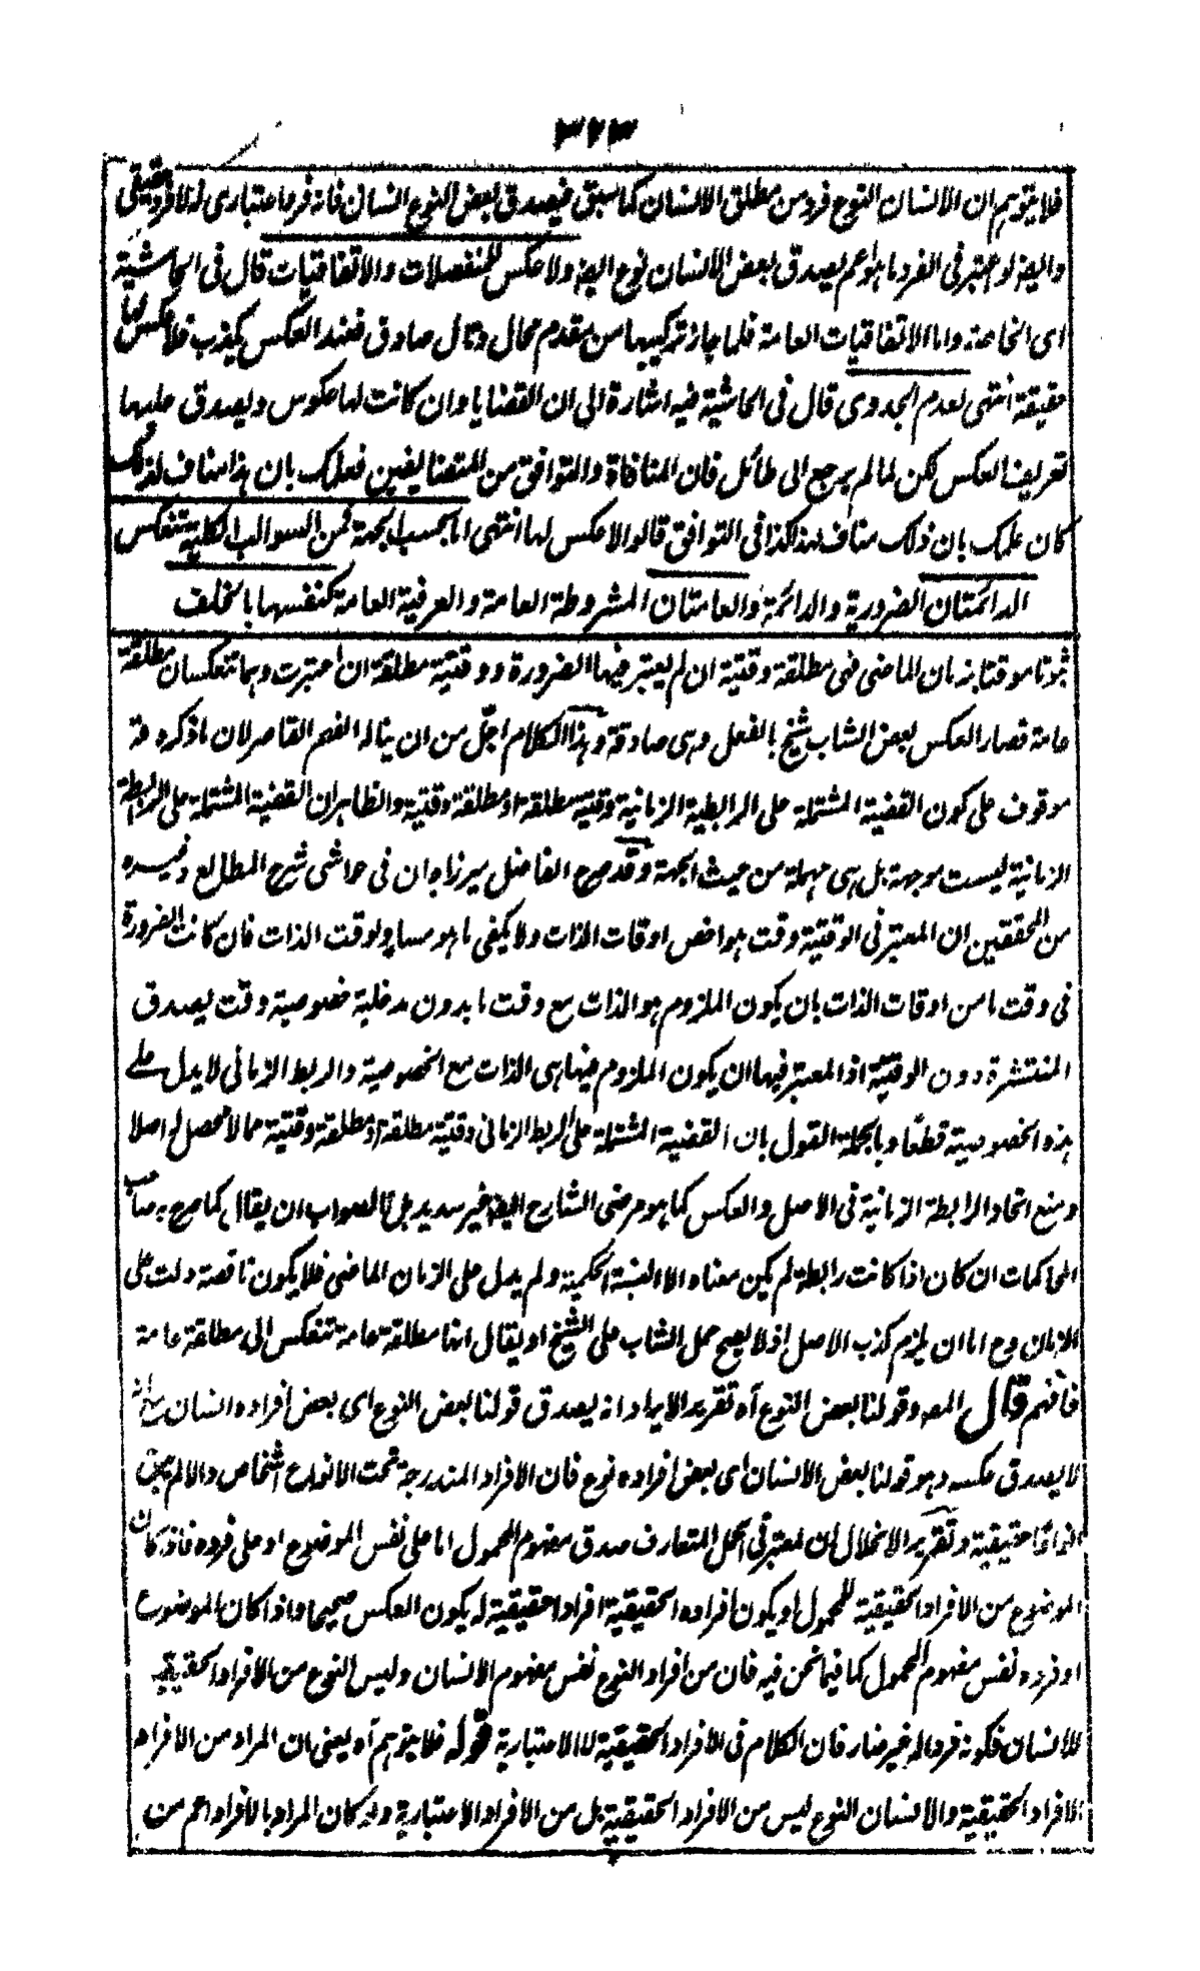 ٣٢٣
فلا يتوهم ان الانسان النوع فرد من مطلق الانسان كما سبق فيصدق بعض النوع انسان فانه فرد اعتبارى له لا فرد حقيقى
وايضا لو اعتبر فى الفرد ما هو اعم يصدق بعض الانسان نوع ايضا ولا عكس للمنفصلات والاتفاقيات قال فى الحاشية
اى الخاصة واما الاتفاقيات العامة فلما جاز تركيبها من مقدم محال وتال صادق فعند العكس يكذب فلا عكس لها
حقيقة انتهى لعدم الجدوى قال فى الحاشية فيه اشارة الى ان القضايا وان كانت لها عكوس ويصدق عليها
تعريف العكس لكن لما لم يرجع الى طائل فان المنافاة والتوافق من المتضايفين فعلمك بان هذا مناف لذلك
كان علمك بان ذلك مناف لهذا كذا فى التوافق قالوا لا عكس لها انتهى اما بحسب الجهة فمن السوالب الكلية تنعكس
الدائمتان الضرورية والدائمة والعامتان المشروطة العامة والعرفية العامة كنفسها بالخلف
ثبوتا موقتا بزمان الماضى فهى مطلقة وقتية ان لم يعتبر فيها الضرورة ووقتية مطلقة ان اعتبرت وهما تنعكسان مطلقة
عامة فصار العكس بعض الشاب شيخ بالفعل وهى صادقة وهذا الكلام اجل من ان يناله الفهم القاصر لان ما ذكره
موقوف على كون القضية المشتملة على الرابطة الزمانية وقتية مطلقة او مطلقة وقتية والظاهر ان القضية المشتملة على الرابطة
الزمانية ليست موجهة بل هى مهملة من حيث الجهة وقد صرح الفاضل ميرزاجان فى حواشى شرح المطالع وغيره
من المحققين ان المعتبر فى الوقتية وقت هو اخص اوقات الذات ولا يكفى ما هو مساو لوقت الذات فان كانت الضرورة
فى وقت ما من اوقات الذات بان يكون الملزوم هو الذات مع وقت ما بدون مدخلية خصوصية وقت يصدق
المنتشرة دون الوقتية اذ المعتبر فيها ان يكون الملزوم فيها هى الذات مع الخصوصية والربط الزمانى لا يدل على
هذه الخصوصية قطعًا وبالجملة القول بان القضية المشتملة على الربط الزمانى وقتية مطلقة او مطلقة وقتية مما لا محصل له اصلا
ومنع اتحاد الرابطة الزمانية فى الاصل والعكس كما هو مرضى الشارح ايضا غير سديد بل الصواب ان يقال كما صرح به صاحب
المحاكمات ان كان اذا كانت رابطة لم يكن معناه الا النسبة الحكمية ولم يدل على الزمان الماضى فلا يكون ناقصة دلت على
الزمان وح اما ان يلزم كذب الاصل اذ لا يصح حمل الشاب على الشيخ او يقال انها مطلقة عامة تنعكس الى مطلقة عامة
فافهم قال المص وقولنا بعض النوع آه تقرير الايراد انه يصدق قولنا بعض النوع اى بعض افراده انسان مع انه
لا يصدق عكسه وهو قولنا بعض الانسان اى بعض افراده نوع فان الافراد المندرجة تحت الانواع اشخاص والا لم يبق
انواعًا حقيقية وتقرير الانحلال ان المعتبر فى الحمل المتعارف صدق مفهوم المحمول اما على نفس الموضوع او على فرده فاذا كان
الموضوع من الافراد الحقيقية للمحمول او يكون افراده الحقيقية افرادا حقيقية له يكون العكس صحيحا واذا كان الموضوع
او فرده نفس مفهوم المحمول كما فيما نحن فيه فان من افراد النوع نفس مفهوم الانسان وليس النوع من الافراد الحقيقية
للانسان فكونه فردا له غير ضار فان الكلام فى الافراد الحقيقية لا الاعتبارية قوله فلا يتوهم آه يعنى ان المراد من الافراد
الافراد الحقيقية والانسان النوع ليس من الافراد الحقيقية بل من الافراد الاعتبارية ولو كان المراد بالافراد اعم من